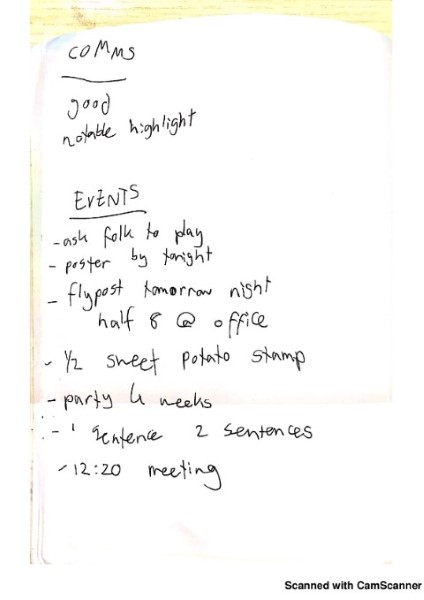 COMMS
good
notable highlight
EVENTS
- ask folk to play
- poster by tonight
- flypost tomorrow night
half 8 @ office
- 1/2 sweet potato stamp
- party 4 weeks
- 1 sentence 2 sentences
- 12:20 meeting
Scanned with CamScanner